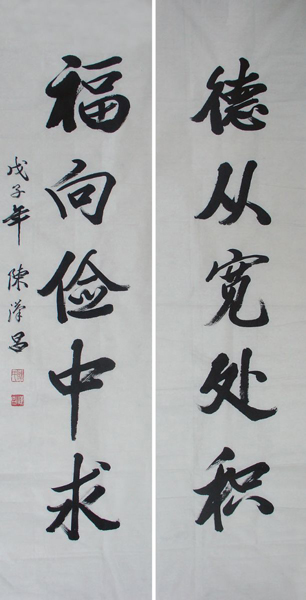 德从宽处积
福向俭中求
戊子年 陈汉昌